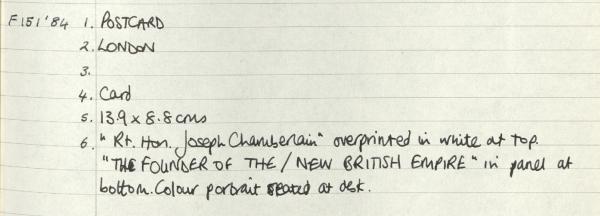 F151'84 1. POSTCARD
2. LONDON
3.
4. Card
5. 13.9 x 8.8 cms
6. "Rt. Hon. Joseph Chamberlain" overprinted in white at top.
"THE FOUNDER OF THE / NEW BRITISH EMPIRE" in panel at
bottom. Colour portrait seated at desk.